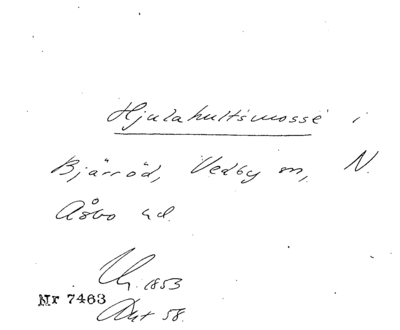 Hjulahultsmosse i
Bjärröd, Vedby sn, N.
Åsbo hd.
1853
Nr 7463
Akt 58.